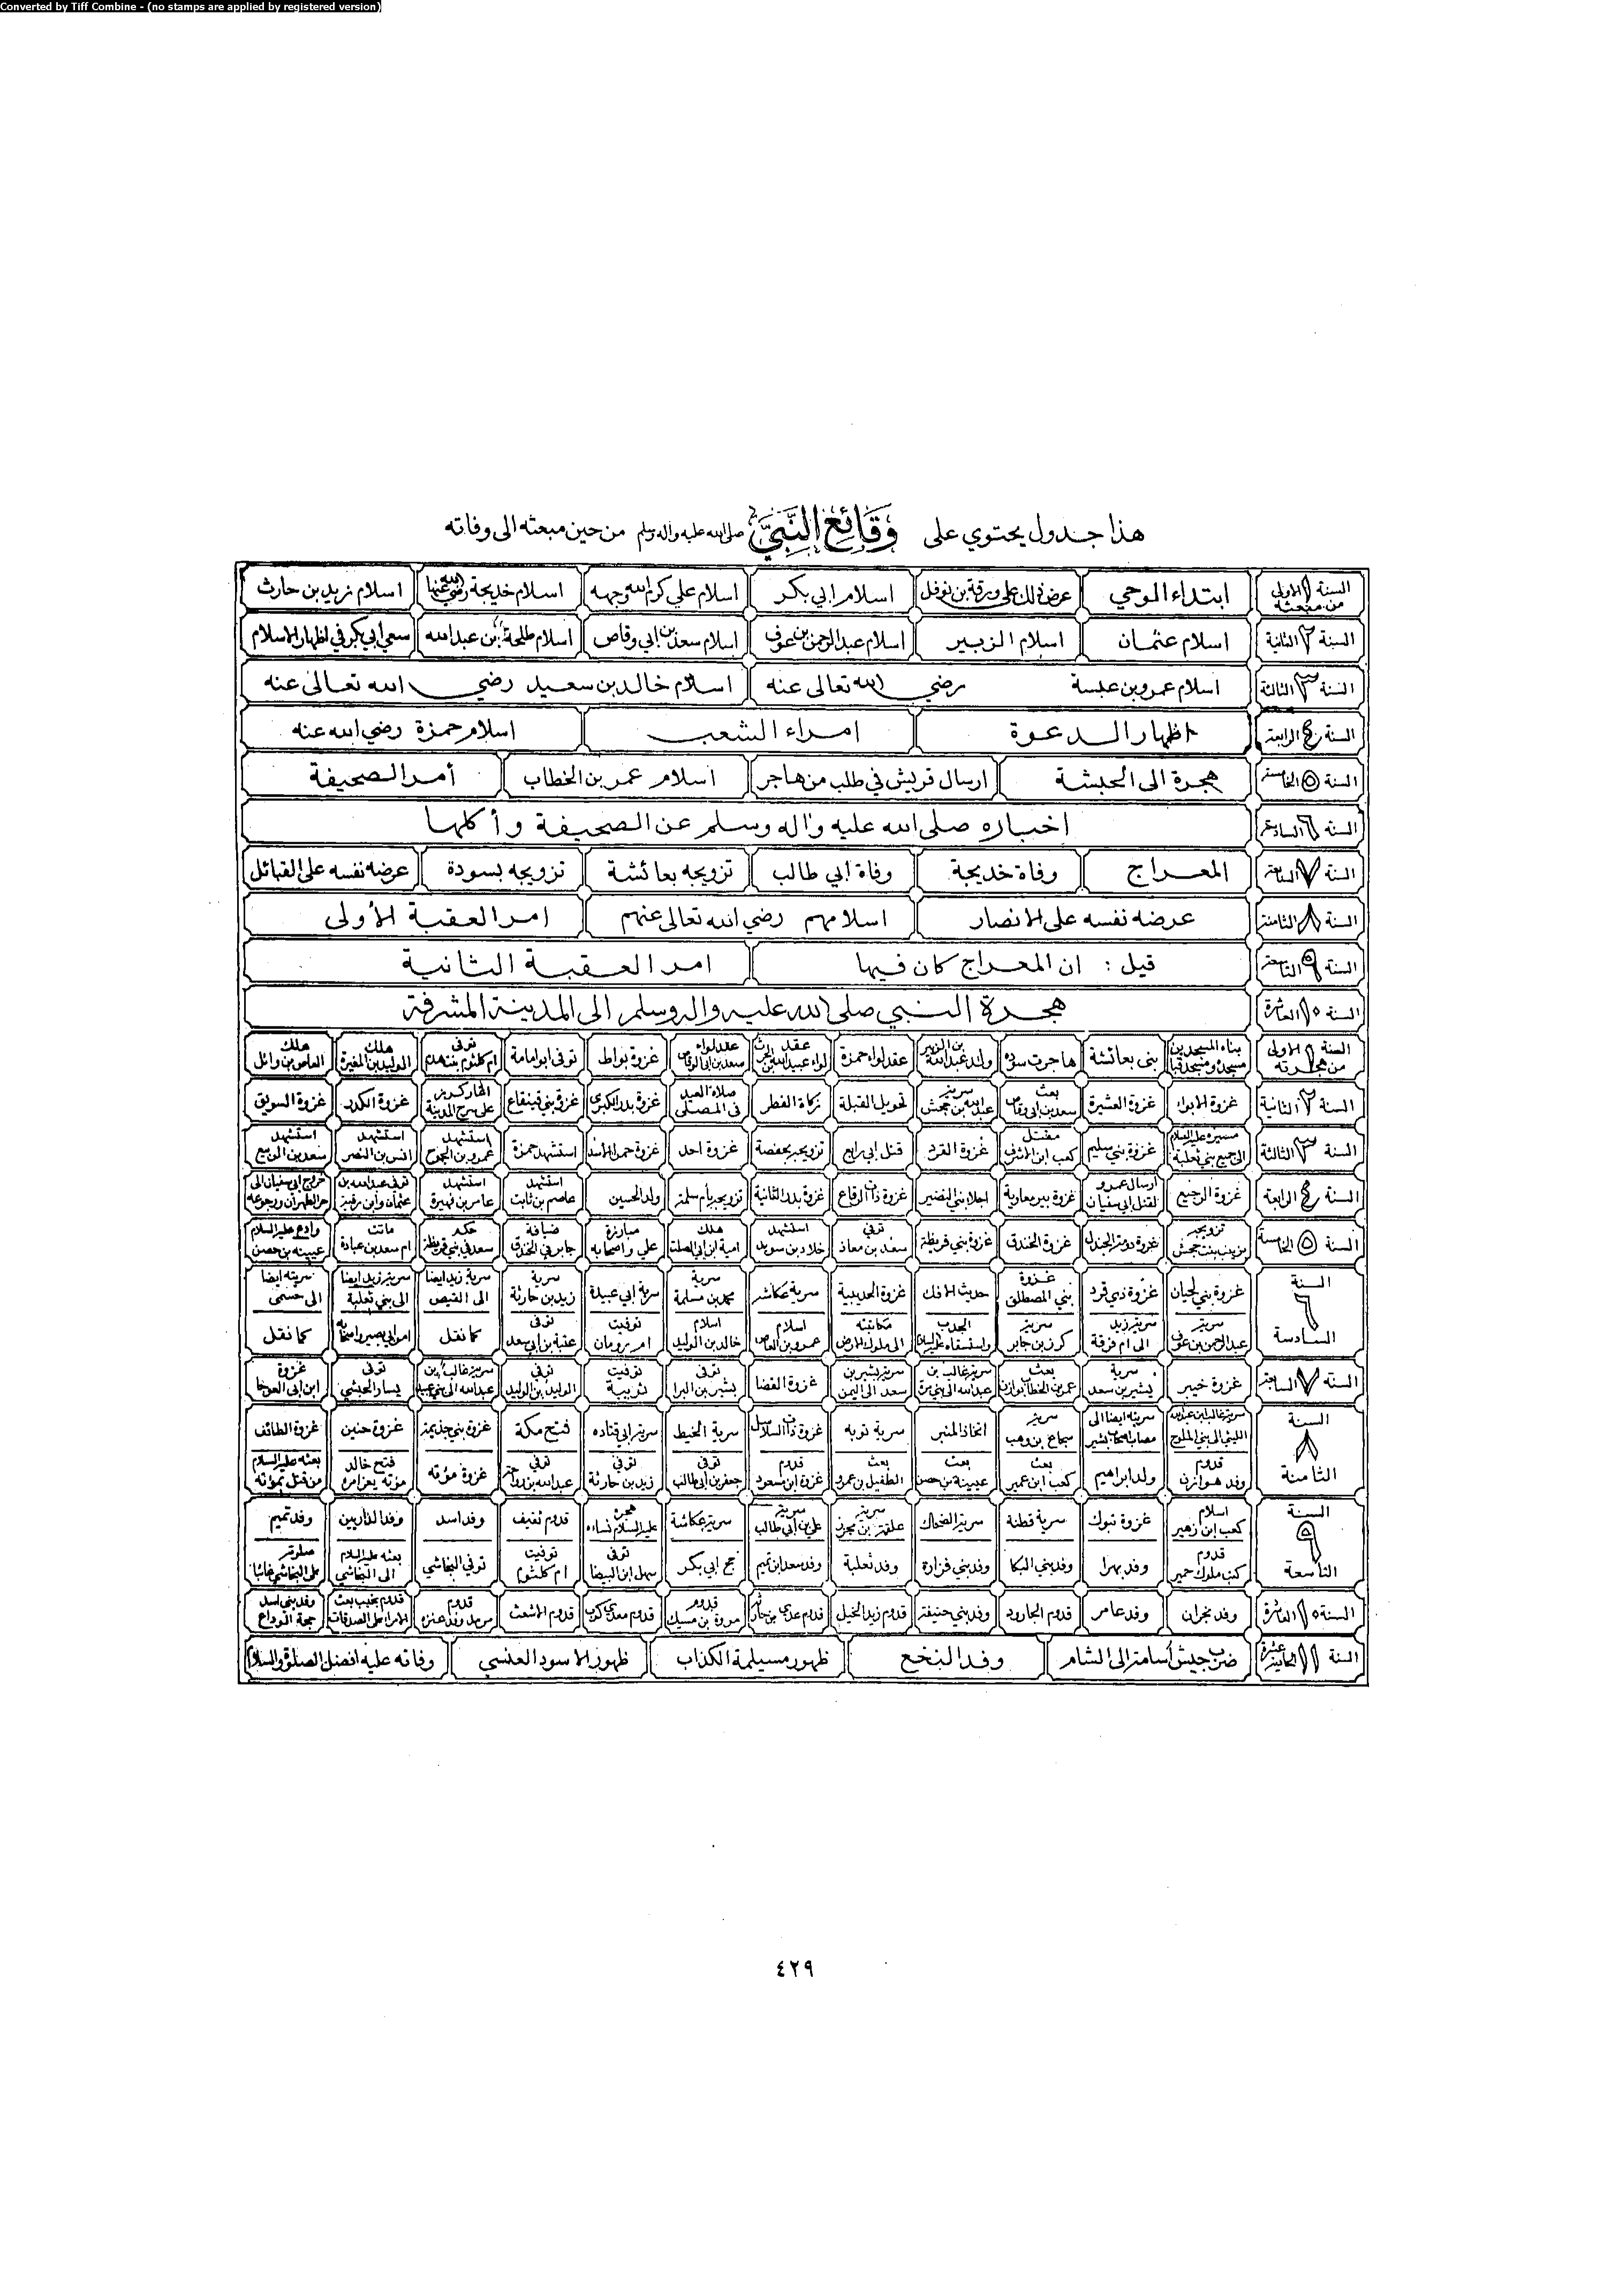 Converted by Tiff Combine - (no stamps are applied by registered version)
هذا جدول يحتوي على وَقَائِعِ النَّبِيِّ صلى الله عليه واله وسلم من حين مبعثه الى وفاته
السنة ١ الاولى من مبعثه ابتداء الوحي عرض ذلك على ورقة بن نوفل اسلام ابي بكر اسلام علي كرم الله وجهه اسلام خديجة رضي الله عنها اسلام زيد بن حارث
السنة ٢ الثانية اسلام عثمان اسلام الزبير اسلام عبد الرحمن بن عوف اسلام سعد بن ابي وقاص اسلام طلحة بن عبد الله سعي ابي بكر في اظهار الاسلام
السنة ٣ الثالثة اسلام عمرو بن عبسة رضي الله تعالى عنه اسلام خالد بن سعيد رضي الله تعالى عنه
السنة ٤ الرابعة اظهار الدعوة امراء الشعب اسلام حمزة رضي الله عنه
السنة ٥ الخامسة هجرة الى الحبشة ارسال قريش في طلب من هاجر اسلام عمر بن الخطاب أمر الصحيفة
السنة ٦ السادسة اخباره صلى الله عليه واله وسلم عن الصحيفة وأكلها
السنة ٧ السابعة المعراج وفاة خديجة وفاة ابي طالب تزويجه بعائشة تزويجه بسودة عرضه نفسه على القبائل
السنة ٨ الثامنة عرضه نفسه على الانصار اسلامهم رضي الله تعالى عنهم امر العقبة الأولى
السنة ٩ التاسعة قيل : ان المعراج كان فيها امر العقبة الثانية
السنة ١٠ العاشرة هجرة النبي صلى الله عليه واله وسلم الى المدينة المشرفة
السنة ١ الاولى من هجرته بناء المسجدين مسجده ومسجد قبا بنى بعائشة هاجرت سودة ولد عبد الله بن الزبير عقد لواء حمزة عقد لواء عبيد الله بن الحرث عقد لواء سعد بن ابي وقاص غزوة بواط توفى ابو امامة توفى ام كلثوم بنت هدم هلك الوليد بن المغيرة هلك العاص بن وائل
السنة ٢ الثانية غزوة الابواء غزوة العشيرة بعث سعد بن ابي وقاص سرية عبد الله بن جحش تحويل القبلة زكاة الفطر صلاة العيد في المصلى غزوة بدر الكبرى غزوة بني قينقاع اغار كرز بن على سرح المدينة غزوة الكدر غزوة السويق
السنة ٣ الثالثة مسيره عليه السلام الى جمع بني ثعلبة غزوة بني سليم مقتل كعب ابن الاشرف غزوة القرد قتل ابي رافع تزويجه بحفصة غزوة احد غزوة حمراء الاسد استشهد حمزة استشهد عمرو بن الجموح استشهد انس بن النضر استشهد سعد بن الربيع
السنة ٤ الرابعة غزوة الرجيع ارسال عمرو لقتل ابي سفيان غزوة بير معاوية اجلا بني النضير غزوة ذات الرقاع غزوة بدر الثانية تزويجه بأم سلمة ولد الحسين استشهد عاصم بن ثابت استشهد عامر بن فهيرة توفى عبد الله بن عثمان خروج ابي سفيان الى مر الظهران ورجوعه
السنة ٥ الخامسة تزويجه بزينب بنت جحش غزوة دومة الجندل غزوة الخندق غزوة بني قريظة توفي سعد بن معاذ استشهد خلاد بن سويد هلك امية ابن ابي الصلت مبارزة علي واصحابه ضيافة جابر في الخندق حكم سعد في بني قريظة ماتت ام سعد بن عبادة وادع عليه السلام عيينه بن حصن
السنة ٦ السادسة غزوة بني لحيان غزوة ذي قرد غزوة بني المصطلق حديث الافك غزوة الحديبية سرية عكاشة سرية محمد بن مسلمة سرية ابي عبيدة سرية زيد بن حارثة سرية زيد ايضا الى القيص سرية زيد ايضا الى بني ثعلبة سريته ايضا الى حسمى
سرية عبد الرحمن بن عوف سرية زيد الى ام قرفة سرية كرز بن جابر الجدب واستسقاه عليه السلام مكاتبته الى ملوك الارض اسلام عمرو بن العاص اسلام خالد بن الوليد توفيت ام رومان توفى عتبة بن ابي سعد كما نقل امر ابي بصير واصحابه كما نقل
السنة ٧ السابعة غزوة خيبر سرية بشير بن سعد بعث عمر بن الخطاب سرية غالب بن عبد الله الى بني مرة سرية بشير بن سعد الى اليمن غزوة القضا توفى بشير بن البرا توفيت ثويبة توفي الوليد بن الوليد سرية غالب بن عبد الله توفى يسار الحبشي غزوة ابن ابي العوجا
السنة ٨ الثامنة سرية غالب ابن عبد الله الليثي الى بني الملوح سريته ايضا الى مصاب اصحاب بشير سرية شجاع بن وهب اتخاذ المنبر سرية تربه غزوة ذات السلاسل سرية الخبط سرية ابي قتاده فتح مكة غزوة بني جذيمة غزوة حنين غزوة الطائف
قدوم وفد هوازن ولد ابراهيم بعث كعب ابن عمير بعث عيينة بن حصن بعث الطفيل بن عمرو قدوم غزوة ابن مسعود توفى جعفر بن ابي طالب توفى زيد بن حارثة توفي عبد الله بن رواحة غزوة مؤته فتح خالد مؤتة بعثه عليه السلام من قتل بمؤته
السنة ٩ التاسعة اسلام كعب ابن زهير غزوة تبوك سرية قطنة سرية الضحاك سرية علقمة بن مجزز سرية علي بن ابي طالب سرية عكاشة هجره عليه السلام نساءه قدوم ثقيف وفد اسد وفد الداريين وفد تميم
قدوم كتب ملوك حمير وفد بهرا وفد بني البكا وفد بني فزارة وفد ثعلبة وفد سعد ابن تميم حج ابي بكر توفى سهل ابن البيضا توفيت ام كلثوم توفي النجاشي بعثه عليه السلام الى النجاشي صلوته على النجاشي غائبا
السنة ١٠ العاشرة وفد نجران وفد عامر قدوم الجارود وفد بني حنيفة قدوم زيد الخيل قدوم عدي بن حاتم قدوم مروة بن مسيك قدوم معدي كرب قدوم الاشعث قدوم وفد عنزه الامرا على الصدقات وفد بني اسد حجة الوداع
السنة ١١ الحادية عشرة ضرب جيش أسامة الى الشام وفد النخع ظهور مسيلمة الكذاب ظهور الاسود العنسي وفاته عليه افضل الصلوة والسلام
٤٢٩